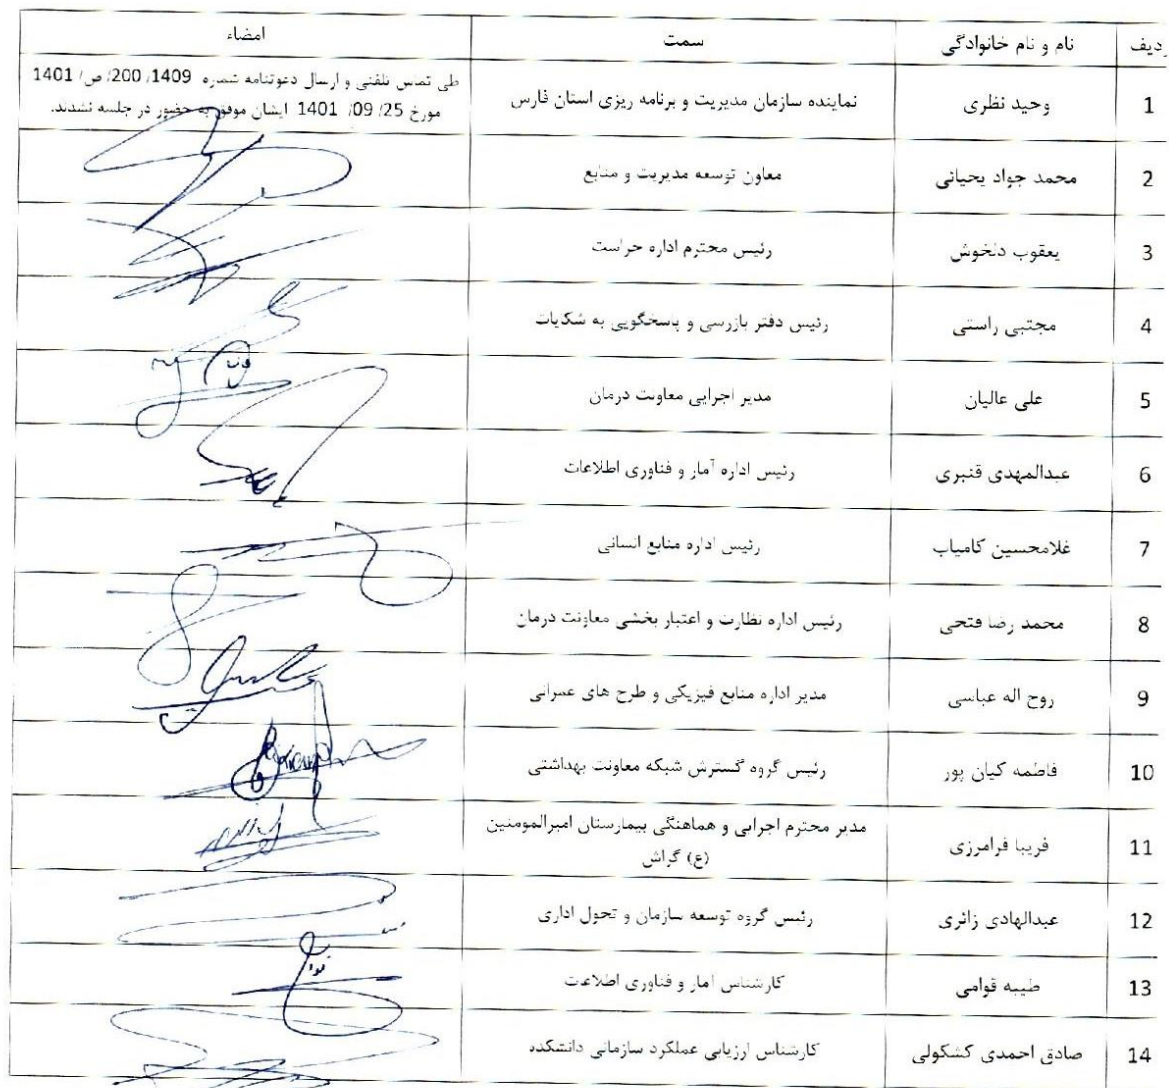 ردیف نام و نام خانوادگی سمت امضاء
1 وحید نظری نماینده سازمان مدیریت و برنامه ریزی استان فارس طی تماس تلفنی و ارسال دعوتنامه شماره 1409/ 200/ ص/ 1401
مورخ 25/ 09/ 1401 ایشان موفق به حضور در جلسه نشدند.
2 محمد جواد یحیائی معاون توسعه مدیریت و منابع
3 یعقوب دلخوش رئیس محترم اداره حراست
4 مجتبی راستی رئیس دفتر بازرسی و پاسخگویی به شکایات
5 علی عالیان مدیر اجرایی معاونت درمان
6 عبدالمهدی قنبری رئیس اداره آمار و فناوری اطلاعات
7 غلامحسین کامیاب رئیس اداره منابع انسانی
8 محمد رضا فتحی رئیس اداره نظارت و اعتبار بخشی معاونت درمان
9 روح اله عباسی مدیر اداره منابع فیزیکی و طرح های عمرانی
10 فاطمه کیان پور رئیس گروه گسترش شبکه معاونت بهداشتی
11 فریبا فرامرزی مدیر محترم اجرایی و هماهنگی بیمارستان امیرالمومنین
(ع) گراش
12 عبدالهادی زائری رئیس گروه توسعه سازمان و تحول اداری
13 طیبه قوامی کارشناس امار و فناوری اطلاعات
14 صادق احمدی کشکولی کارشناس ارزیابی عملکرد سازمانی دانشکده